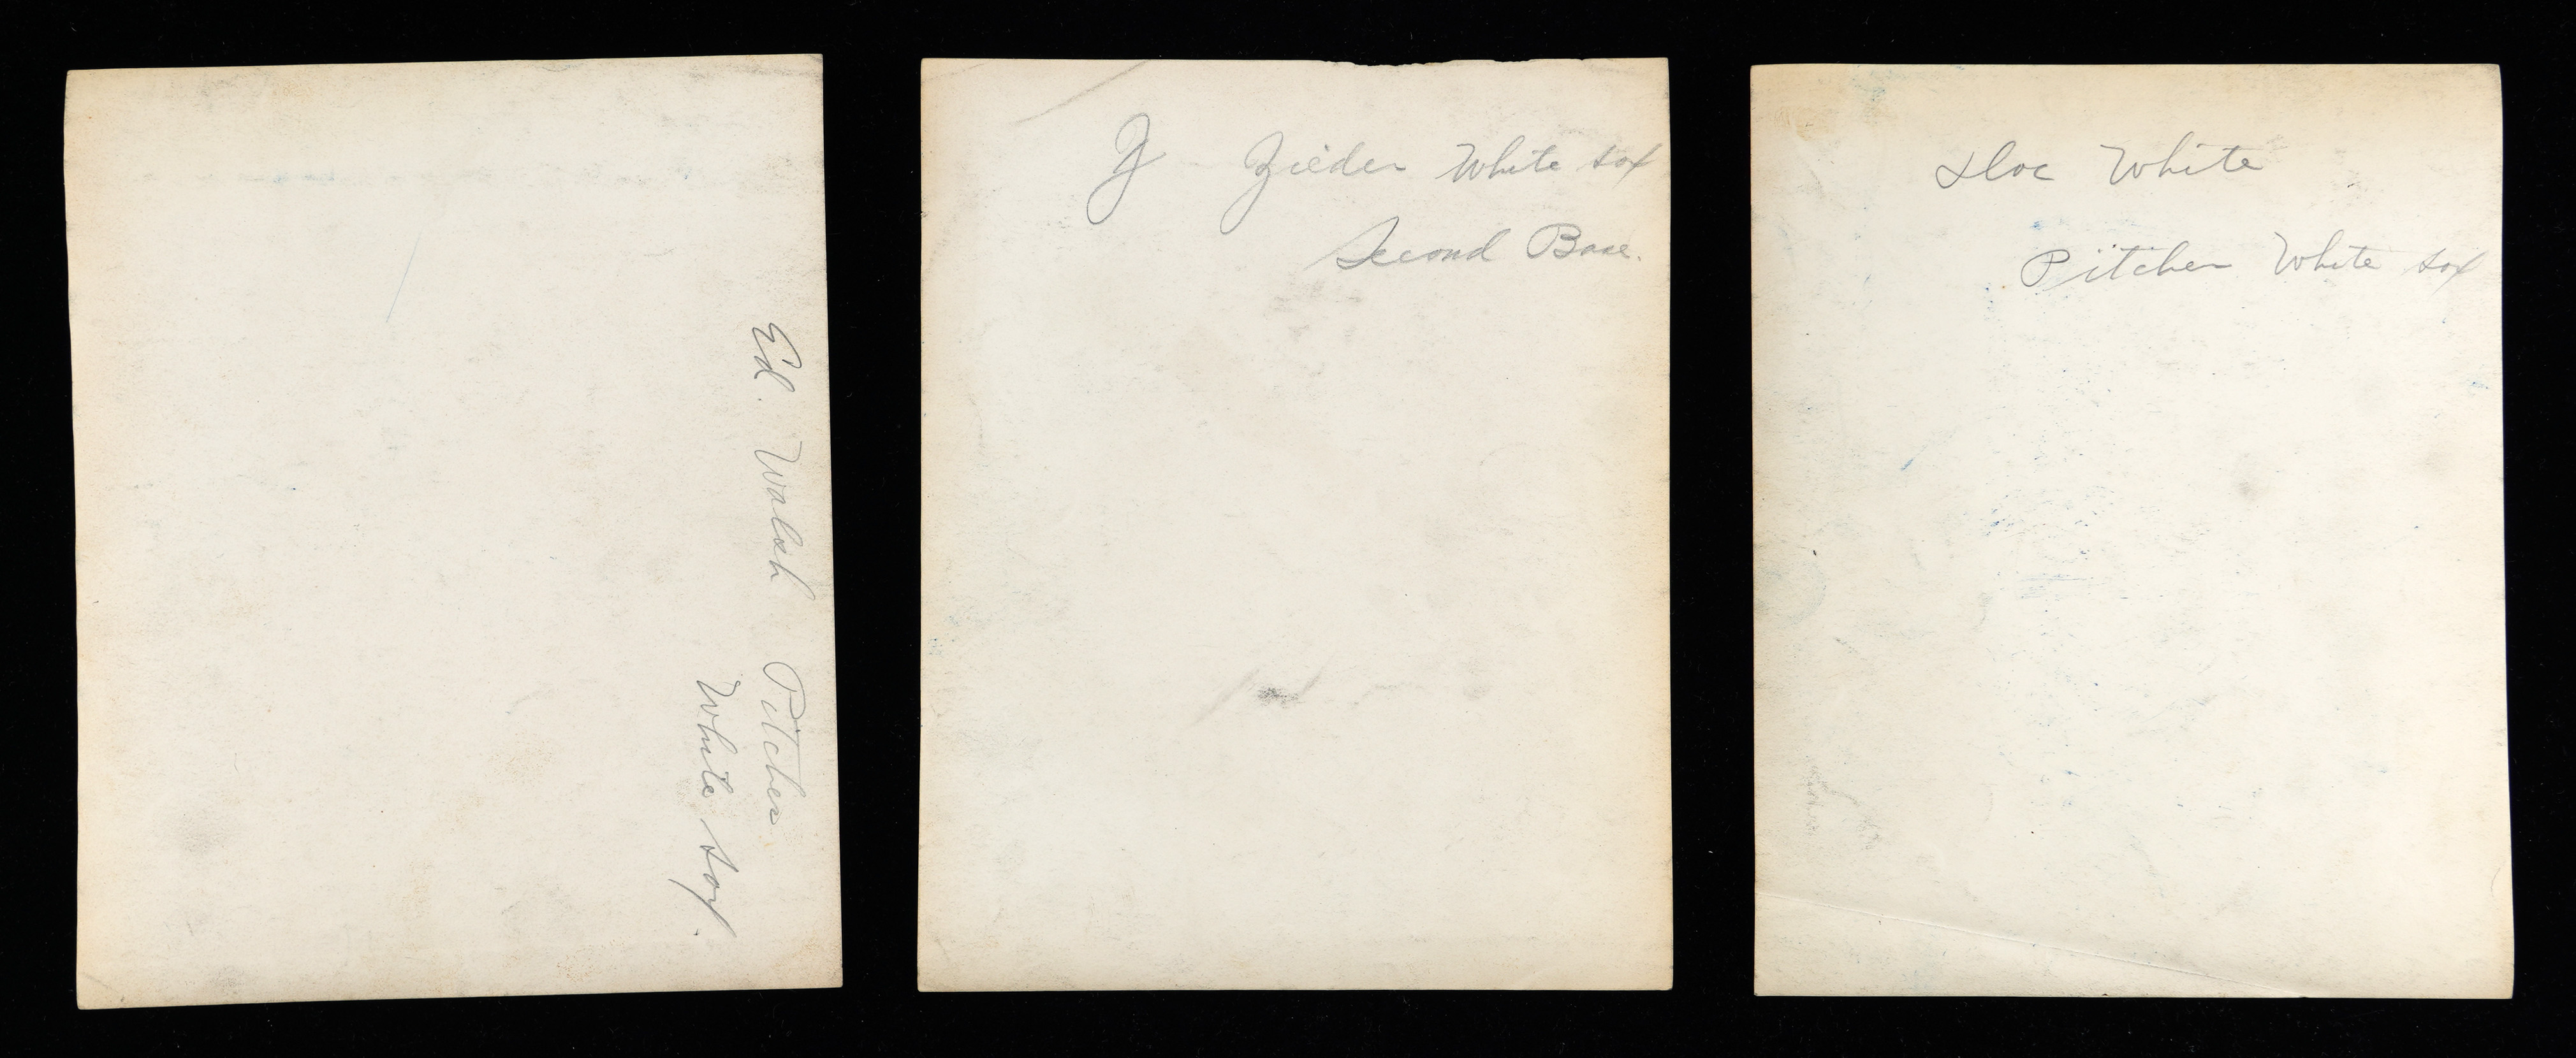 Ed. Walsh Pitcher
White Sox.
Z Zieder White Sox
Second Base.
Doc White
Pitcher White Sox